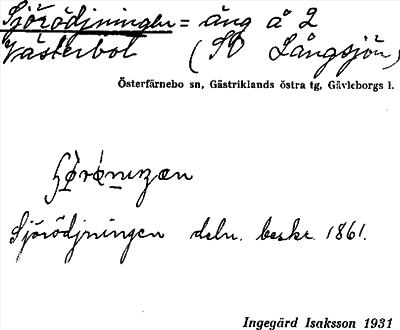 Sjörödjningen = äng å 2
Västerbol (SO Långsjön)
Österfärnebo sn, Gästriklands östra tg, Gävleborgs l.
Sjörödjningen deln. beskr. 1861.
Ingegärd Isaksson 1931